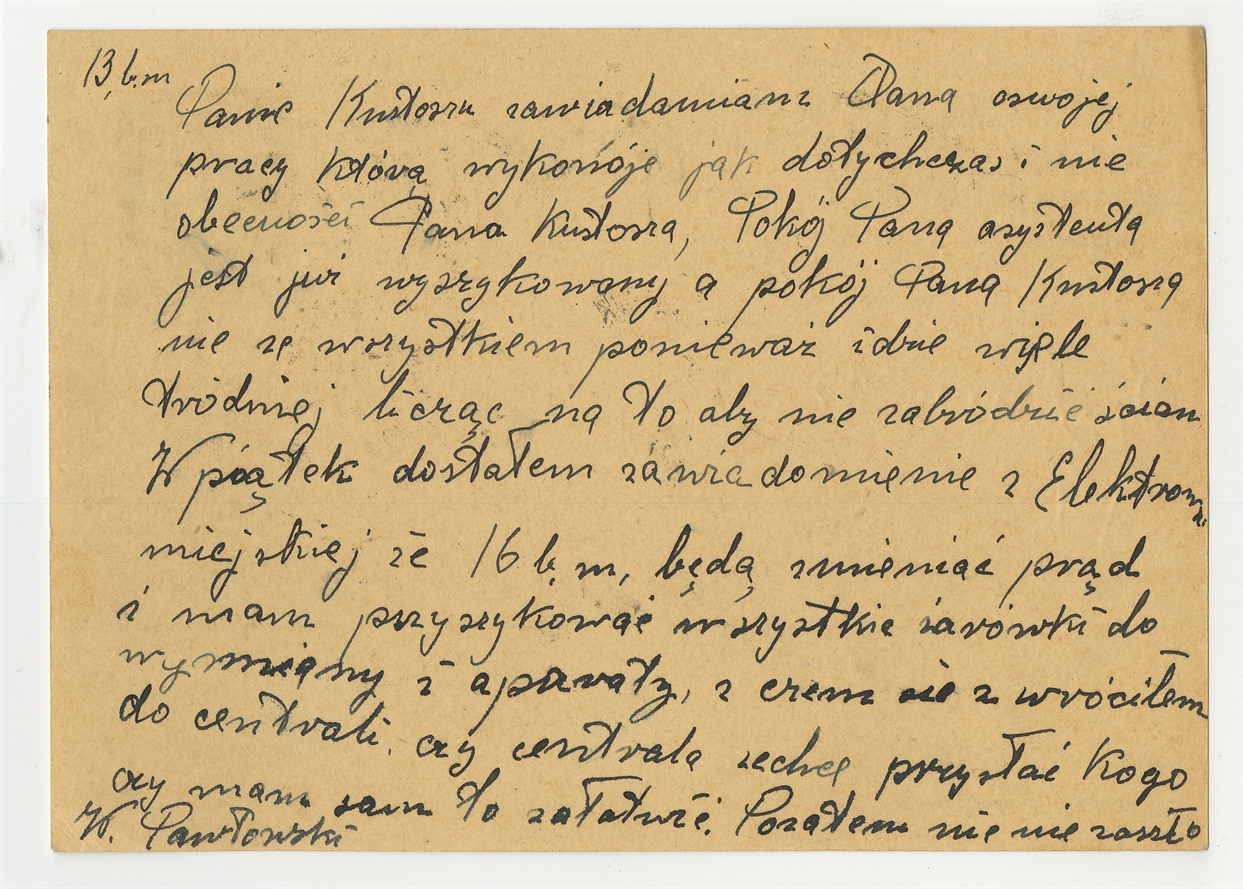 13, b.m
Panie Kustoszu zawiadamiam Pana oswojej
pracy którą wykonóje jak dotychczas i nie
obecności Pana Kustosza, Pokój Pana asystenta
jest już wyszykowany a pokój Pana Kustosza
nie ze wszystkiem ponieważ idzie wiele
tródniej licząc na to aby nie zabródzić ścian
W piątek dostałem zawiadomienie z Elektrowni
miejskiej że 16 b, m, będą zmieniać prąd
i mam przyszykować wszystkie żarówki do
wymiany i aparaty, z czem sie zwróciłem
do centrali, czy centrala zechce przysłać kogo
czy mam sam to załatwić. Pozatem nic nie zaszło
W. Pawłowski